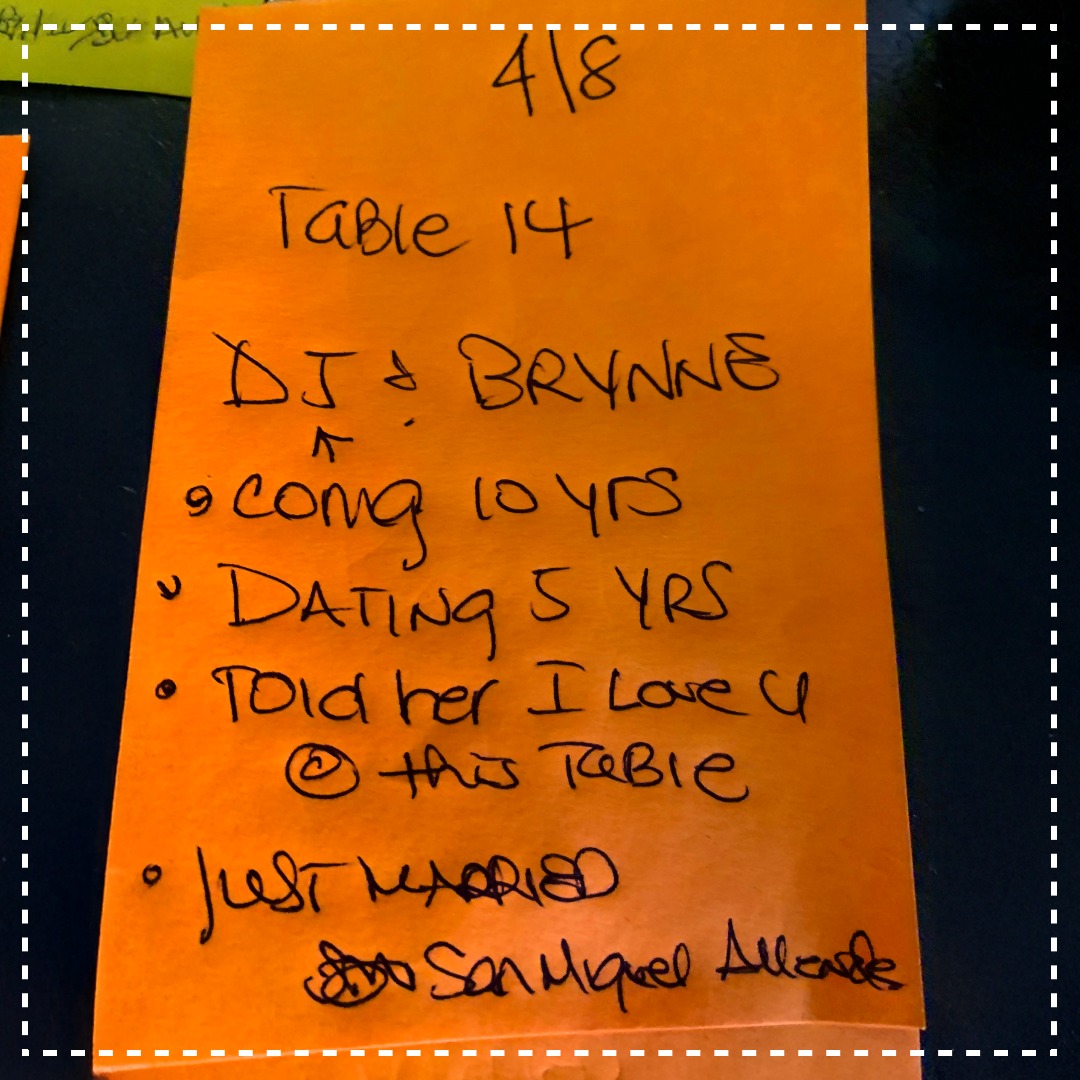 4/8
Table 14
DJ & BRYNNE
• COMG 10 YRS
• DATING 5 YRS
• TOld her I Love U
@ this TaBle
• JUST MARRIED
San Miquel Allende